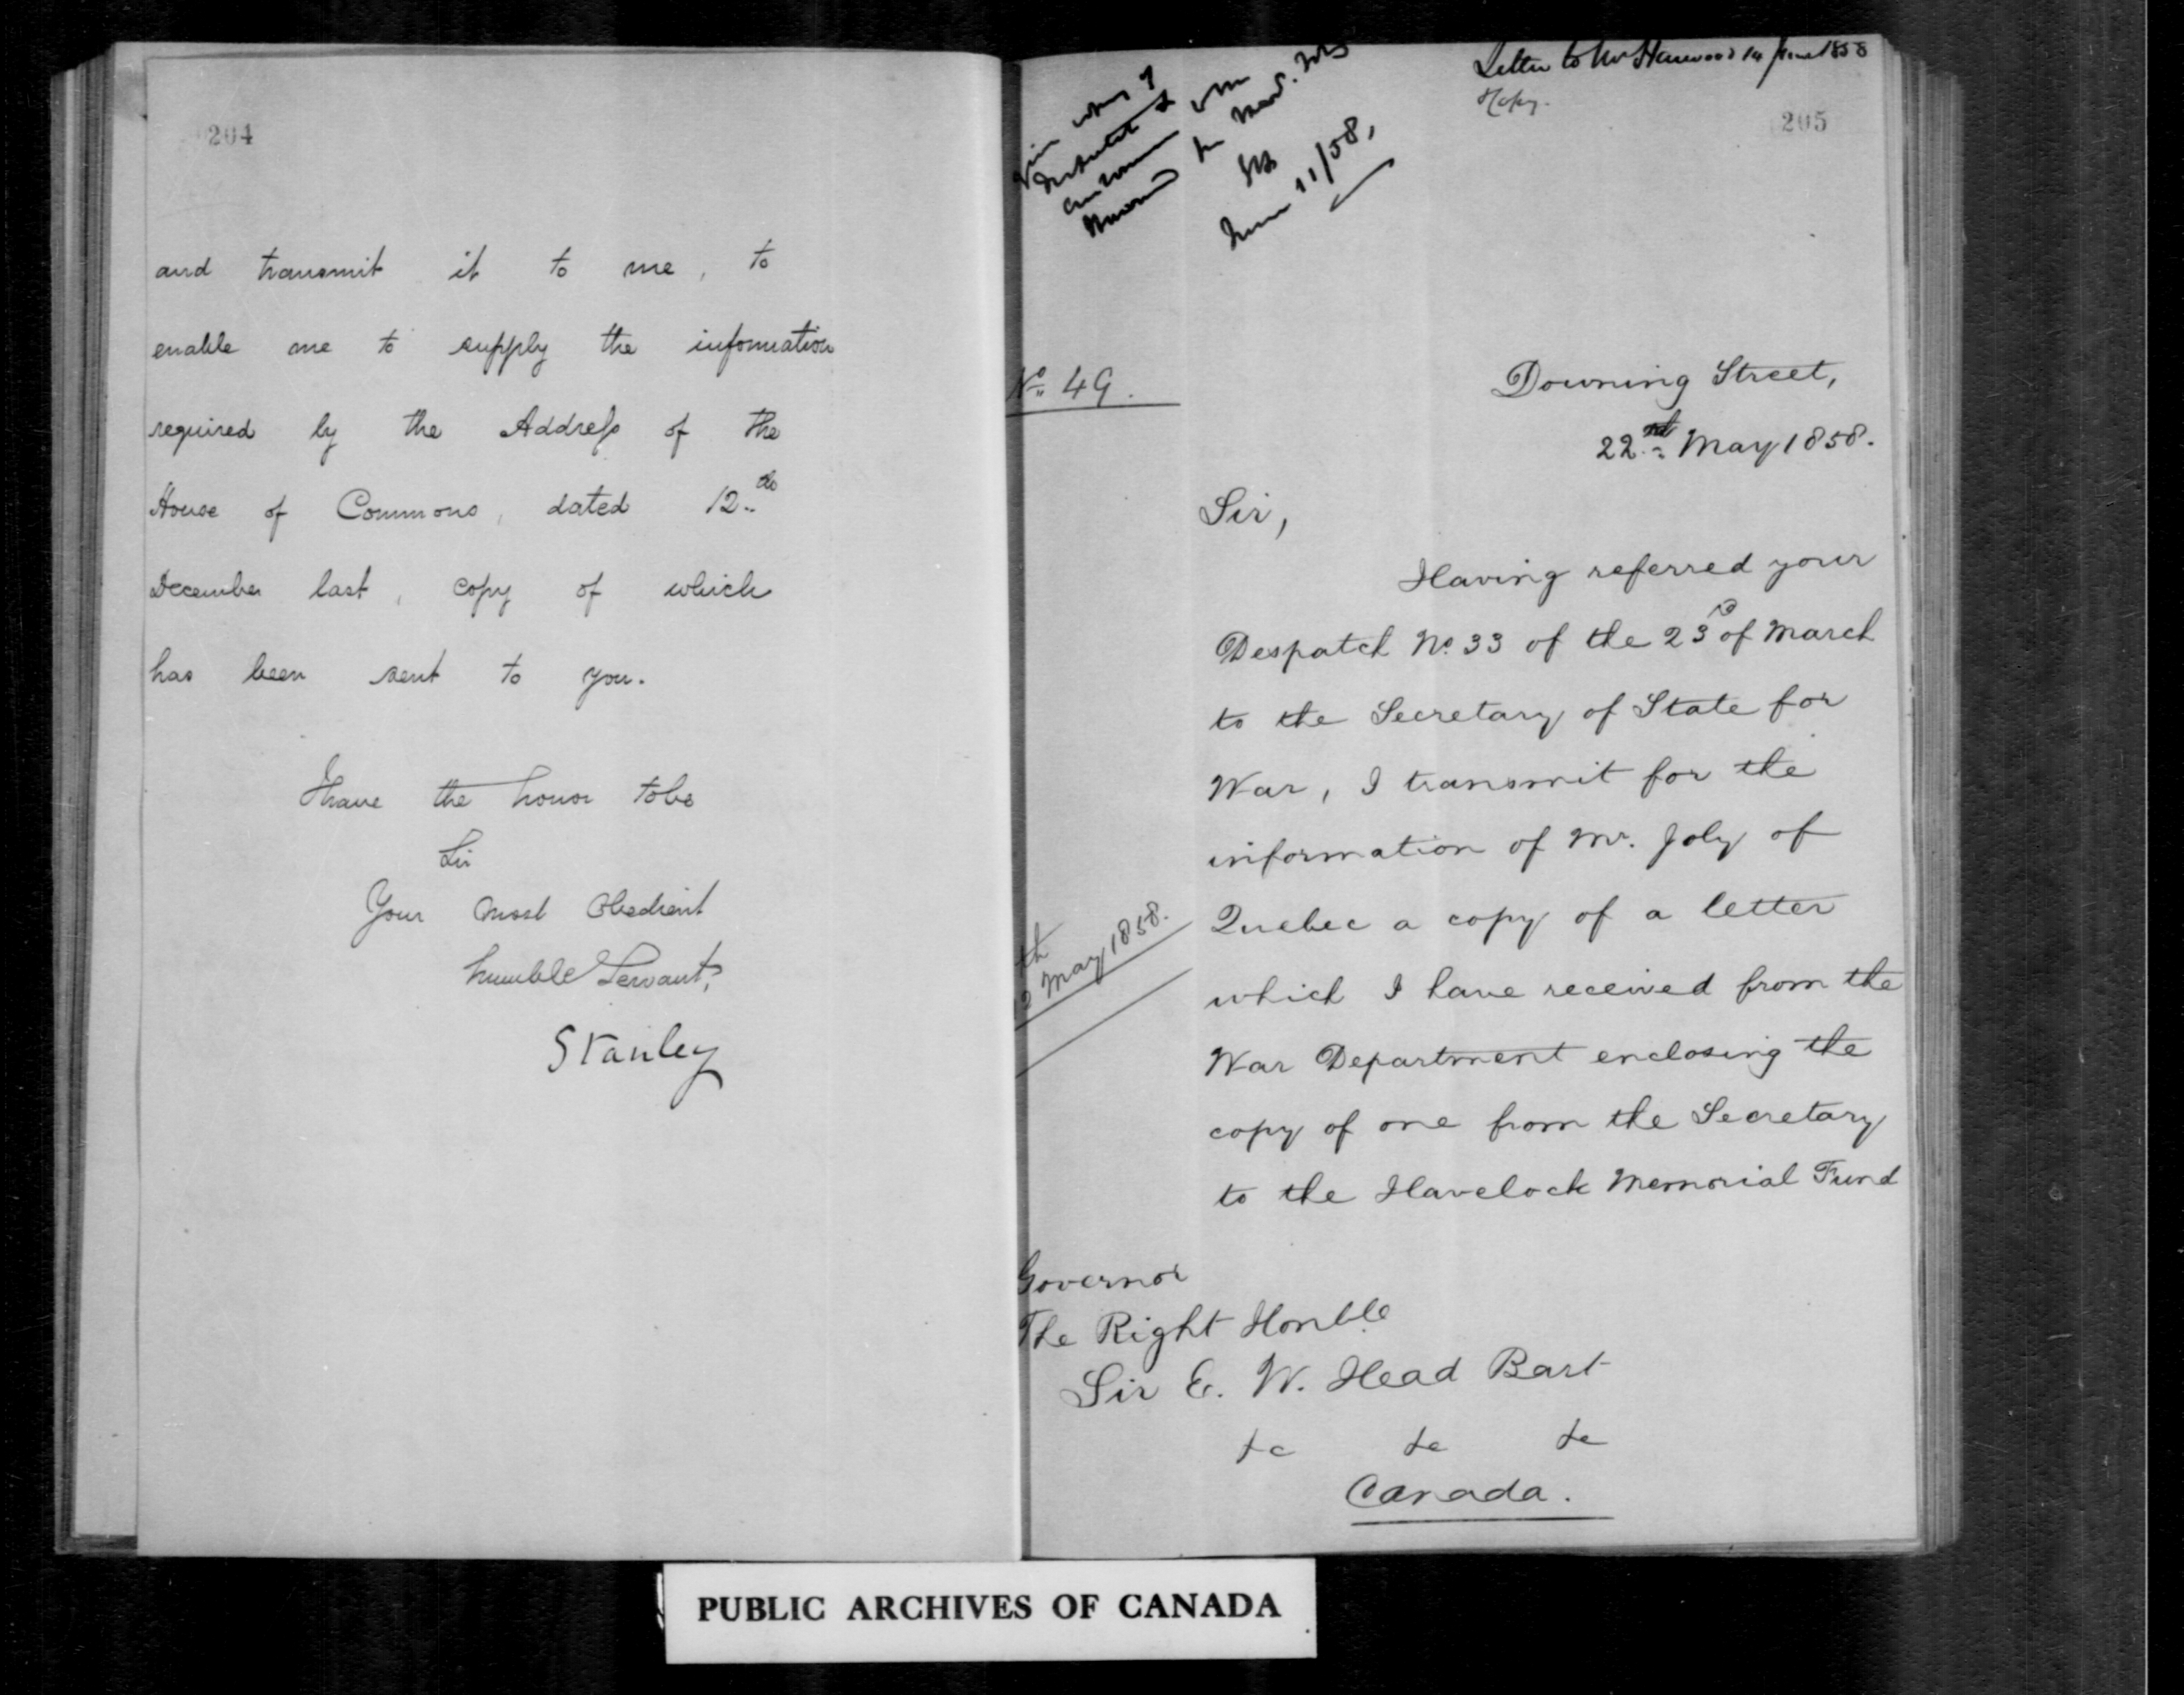 204
and transmit it to me, to
enable me to supply the information
required by the Address of the
House of Commons, dated 12.
December last, copy of which
has been sent to you.
I have the honor to be
Sir
Your most Obedient
humble Servant,
Stanley
Letter to Mr Harwood 14 June 1858
Copy.
205
June 11/58,
No. 49.
Downing Street,
22nd May 1858.
Sir,
Having referred your
Despatch No. 33 of the 23rd of March
to the Secretary of State for
War, I transmit for the
information of Mr. Joly of
Quebec a copy of a letter
th
May 1858.
which I have received from the
War Department enclosing the
copy of one from the Secretary
to the Havelock Memorial Fund
Governor
The Right Honble
Sir E. W. Head Bart
&c &c &c
Canada.
PUBLIC ARCHIVES OF CANADA